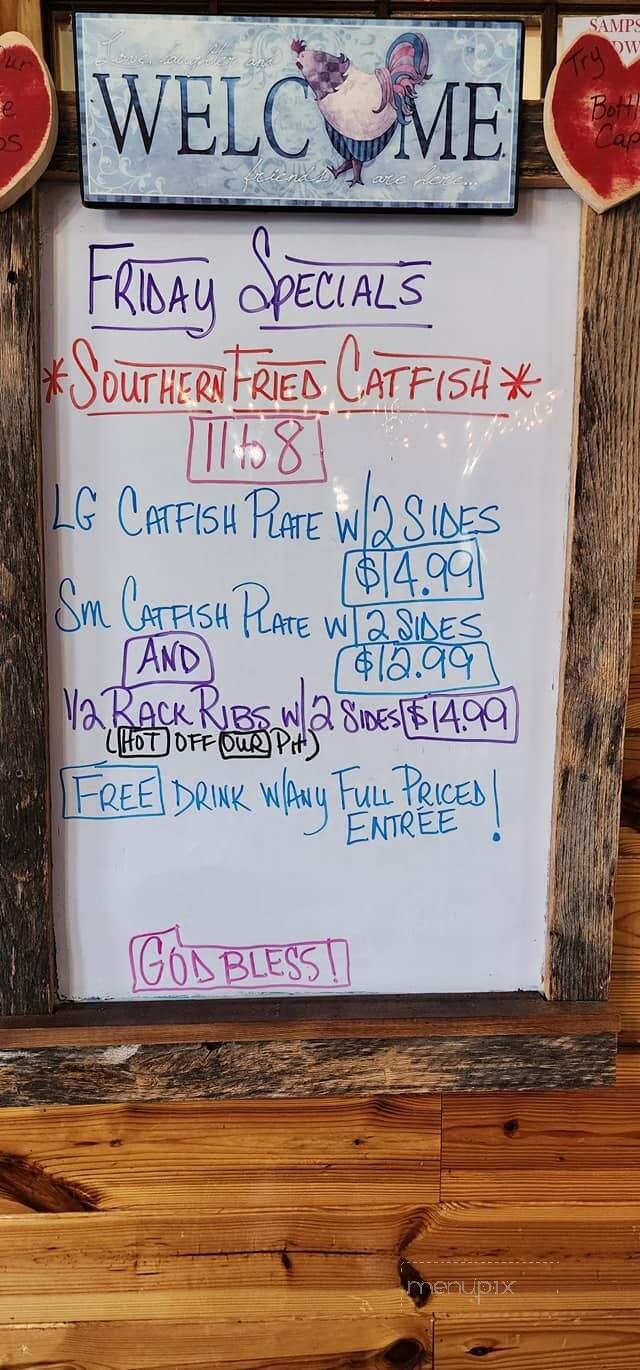 Love, laughter and
WELCOME
friends are here...
SAMPS
Try
Bottle
Cap
FRIDAY SPECIALS
*SOUTHERN FRIED CATFISH*
11 to 8
LG CATFISH PLATE W/2 SIDES
$14.99
Sm CATFISH PLATE W/2 SIDES
$12.99
AND
1/2 RACK RIBS W/2 SIDES $14.99
(HOT OFF OUR Pit)
FREE DRINK W/ANY FULL PRICED
ENTRÉE!
GOD BLESS!
menupix